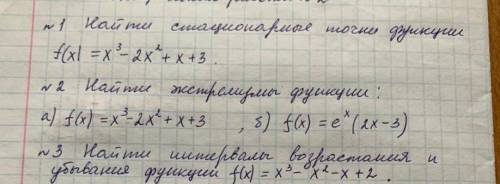 №1 Найти стационарные точки функции
f(x) = x³ - 2x² + x + 3.
№2 Найти экстремумы функции:
а) f(x) = x³ - 2x² + x + 3, б) f(x) = eˣ(2x - 3)
№3 Найти интервалы возрастания и
убывания функции f(x) = x³ - x² - x + 2.